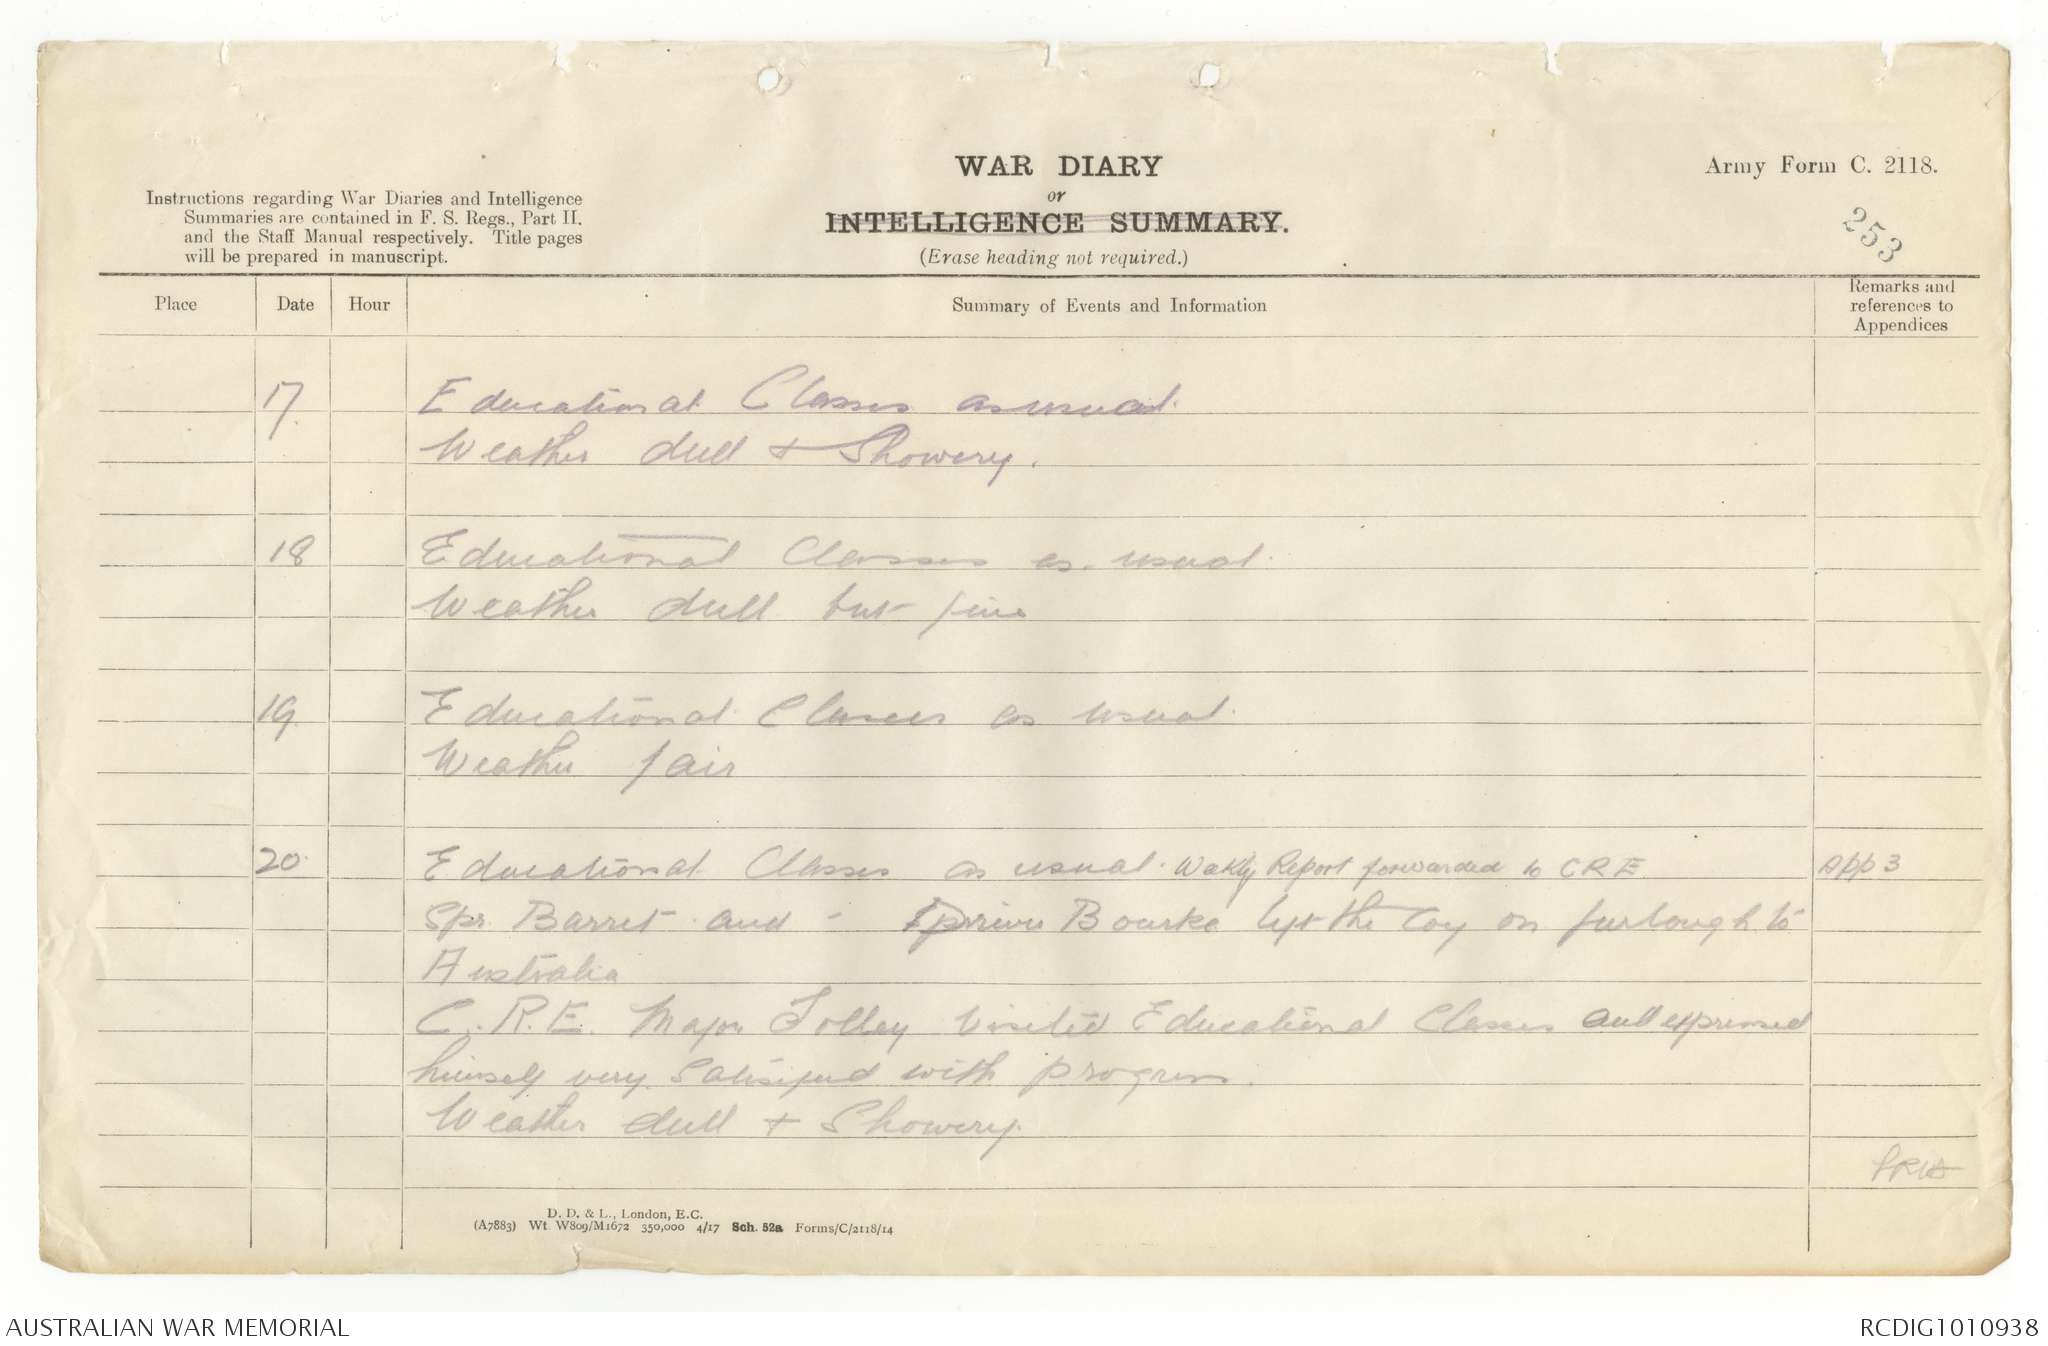 WAR DIARY
or
INTELLIGENCE SUMMARY.
(Erase heading not required.)
Army Form C. 2118.
253
Instructions regarding War Diaries and Intelligence
Summaries are contained in F. S. Regs., Part II.
and the Staff Manual respectively. Title pages
will be prepared in manuscript.
Place Date Hour Summary of Events and Information Remarks and references to Appendices
17. Educational Classes as usual.
Weather dull + Showery.
18 Educational Classes as usual.
Weather dull but fine
19. Educational Classes as usual.
Weather fair
20. Educational Classes as usual. Weekly Report forwarded to CRE App 3
Spr. Barret and - Bourke left the Coy on furlough to
Australia
C.R.E. Major Tolley visited Educational Classes and expressed
himself very satisfied with progress.
Weather dull + Showery.
D. D. & L., London, E.C.
(A7883) Wt. W809/M1672 350,000 4/17 Sch. 52a Forms/C/2118/14
AUSTRALIAN WAR MEMORIAL
RCDIG1010938